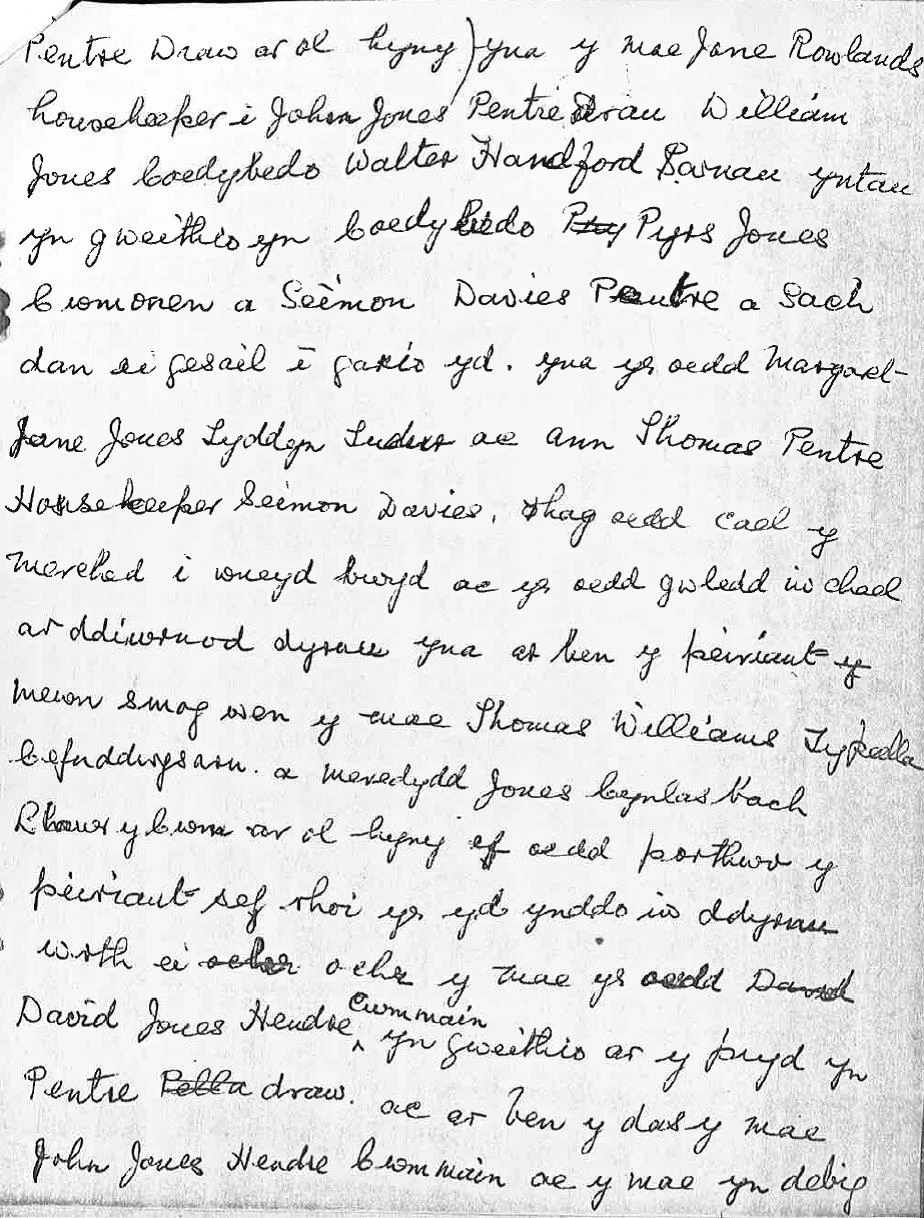 Pentre Draw ar ol hyny) yna y mae Jane Rowlands
housekeeper i John Jones Pentre Drau William
Jones Coedybedo Walter Handford Sarnau yntau
yn gweithio yn Coedybedo Pyrs Jones
Cwmonen a Seimon Davies Pentre a Sach
dan ei gesail i gario yd. yna yr oedd Margaret
Jane Jones Tyddyn Tudur ac Ann Thomas Pentre
Housekeeper Seimon Davies, rhag oedd cael y
Merched i wneyd bwyd ac yr oedd gwledd iw chael
ar ddiwrnod dyrnu yna ar ben y peiriant y
mewn smog wen y mae Thomas Williams Typella
Cefnddwysarn. a Meredydd Jones Cynlas bach
Llawr y Cwm ar ol hyny ef oedd porthwr y
peiriant sef rhoi yr yd ynddo iw ddyrnu
wrth ei ochr y mae yr oedd David
David Jones Hendre Cwmmain yn gweithio ar y pryd yn
Pentre Pella draw. ac ar ben y das y mae
John Jones Hendre Cwmmain ac y mae yn debig